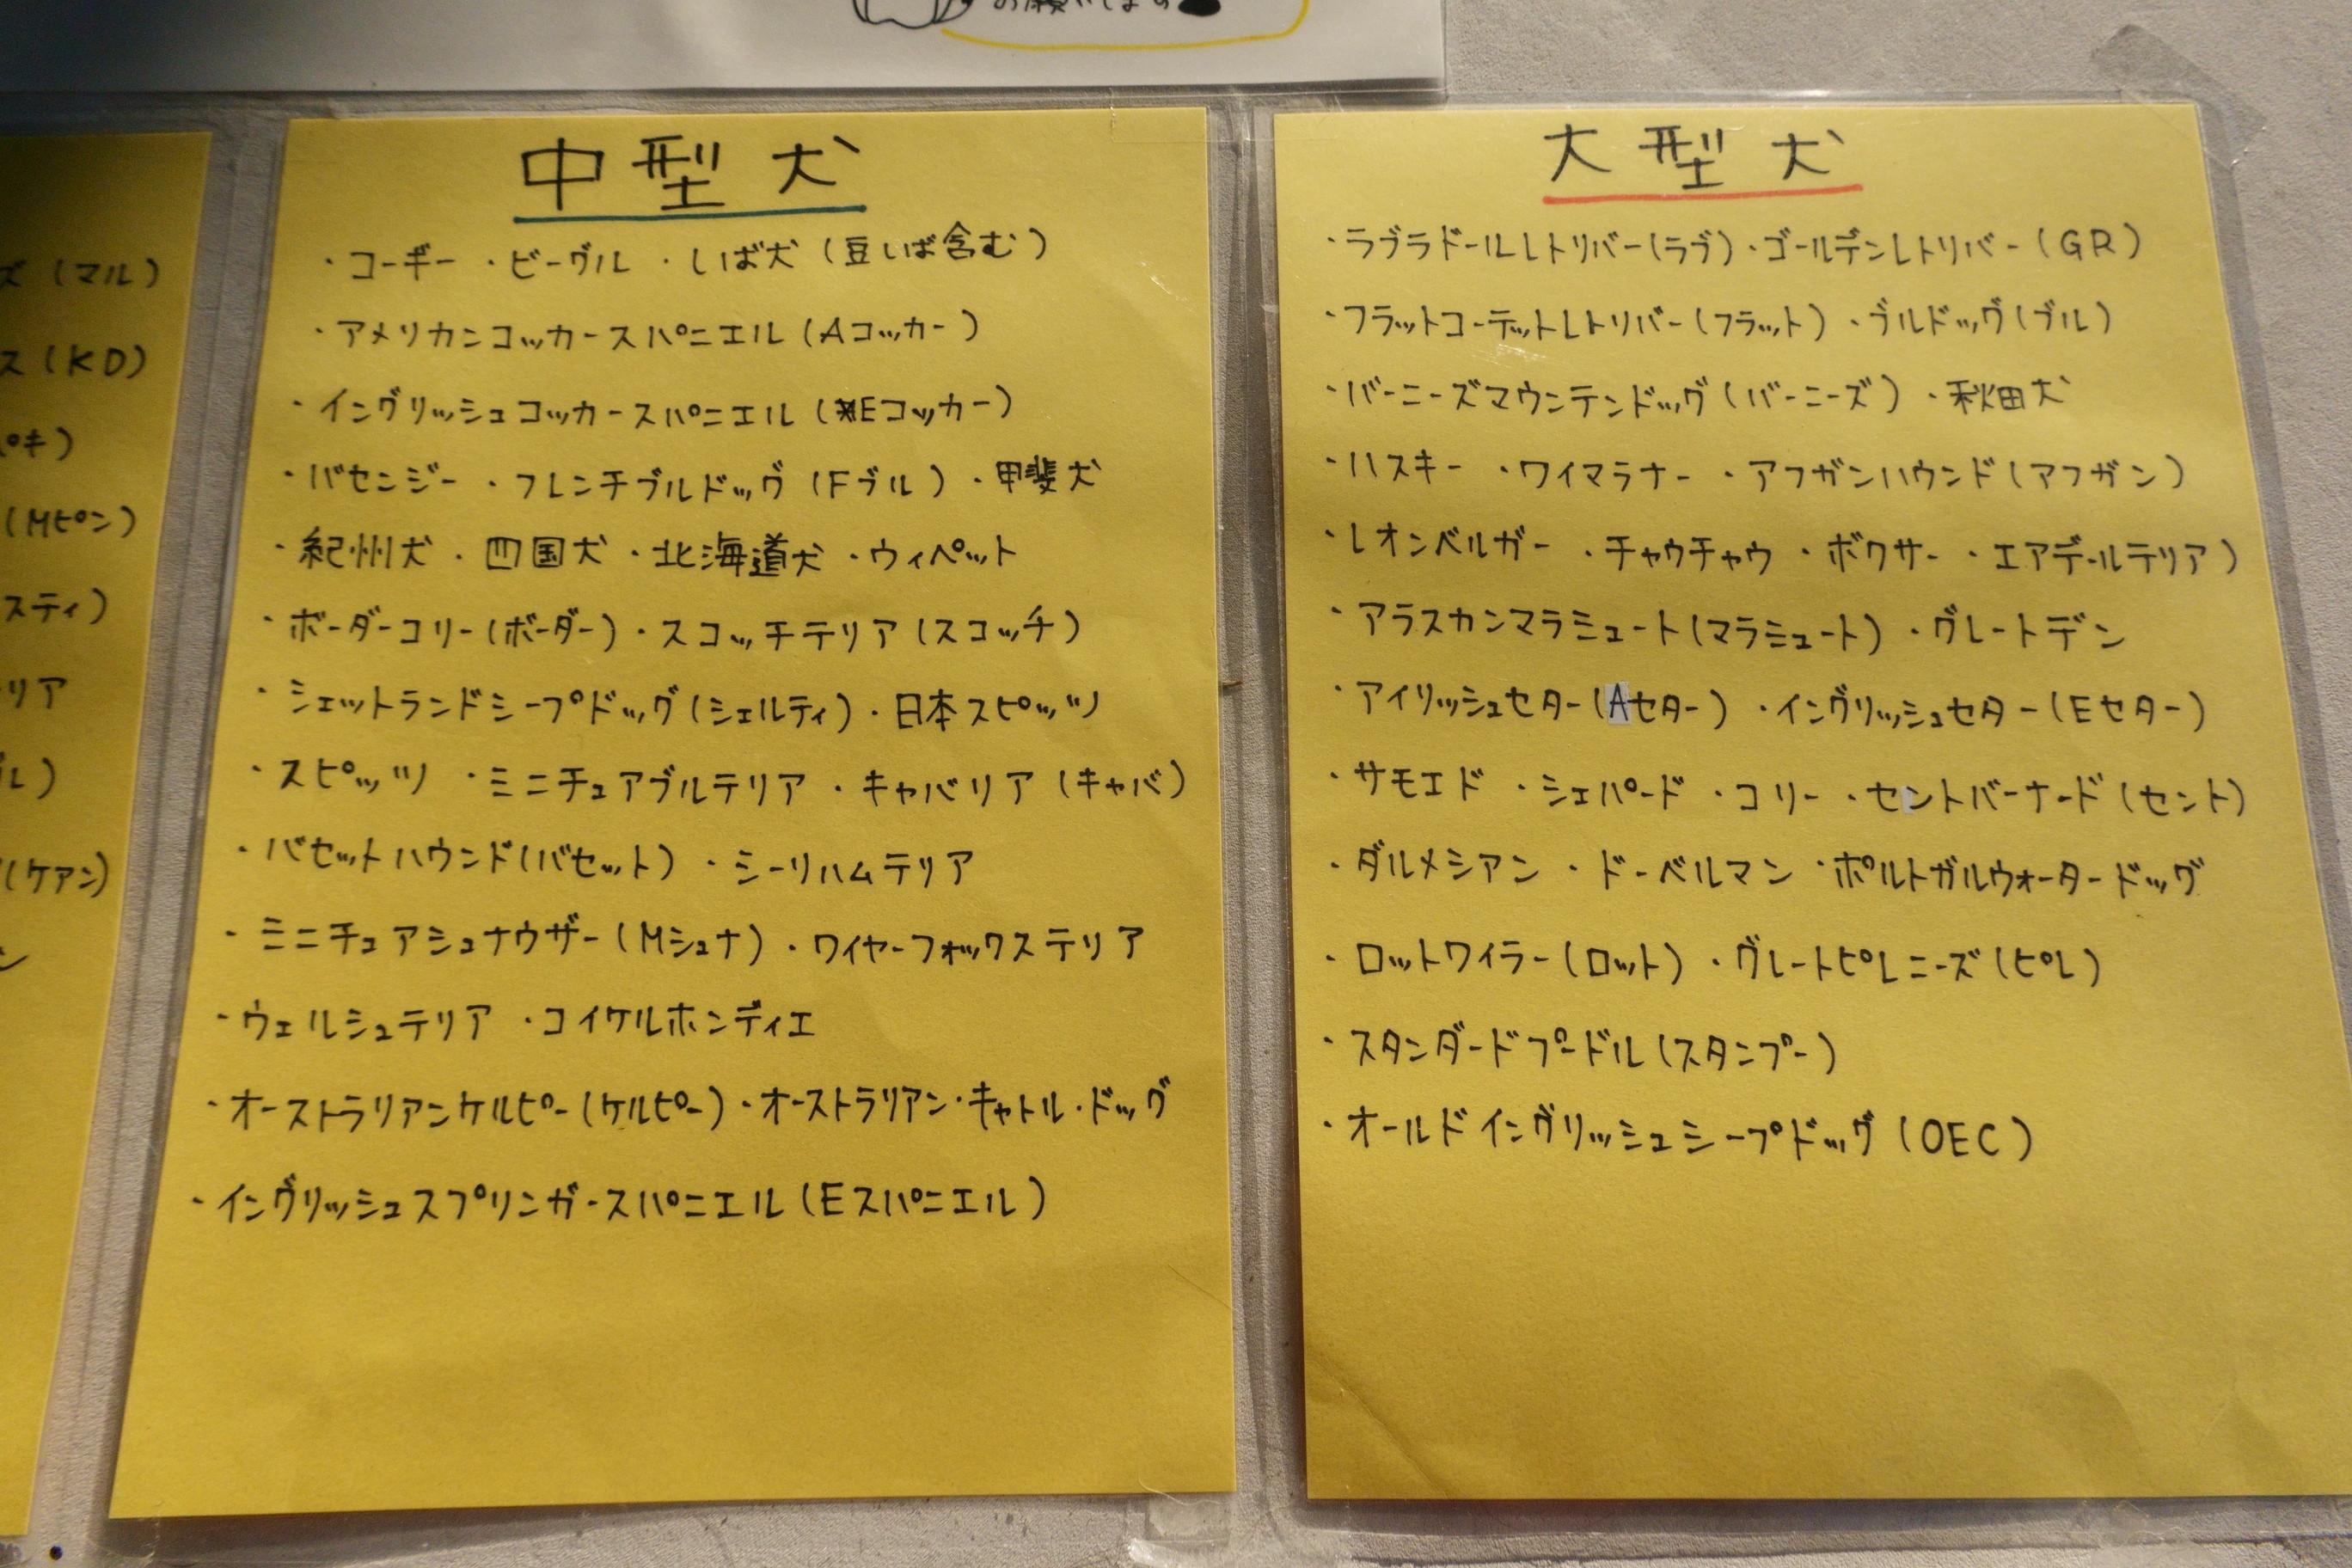 お願いします
ズ(マル)
ス(KD)
ペキ)
(Mピン)
スティ)
リア
ル)
(ケアン)
ン
中型犬
・コーギー ・ビーグル ・しば犬(豆しば含む)
・アメリカンコッカースパニエル(Aコッカー)
・イングリッシュコッカースパニエル(Eコッカー)
・バセンジー ・フレンチブルドッグ(Fブル) ・甲斐犬
・紀州犬 ・四国犬 ・北海道犬 ・ウィペット
・ボーダーコリー(ボーダー) ・スコッチテリア(スコッチ)
・シェットランドシープドッグ(シェルティ) ・日本スピッツ
・スピッツ ・ミニチュアブルテリア ・キャバリア(キャバ)
・バセットハウンド(バセット) ・シーリハムテリア
・ミニチュアシュナウザー(Mシュナ) ・ワイヤーフォックステリア
・ウェルシュテリア ・コイケルホンディエ
・オーストラリアンケルピー(ケルピー) ・オーストラリアン・キャトル・ドッグ
・イングリッシュスプリンガースパニエル(Eスパニエル)
大型犬
・ラブラドールレトリバー(ラブ) ・ゴールデンレトリバー(GR)
・フラットコーテットレトリバー(フラット) ・ブルドッグ(ブル)
・バーニーズマウンテンドッグ(バーニーズ) ・秋田犬
・ハスキー ・ワイマラナー ・アフガンハウンド(アフガン)
・レオンベルガー ・チャウチャウ ・ボクサー ・エアデールテリア)
・アラスカンマラミュート(マラミュート) ・グレートデン
・アイリッシュセター(Aセター) ・イングリッシュセター(Eセター)
・サモエド ・シェパード ・コリー ・セントバーナード(セント)
・ダルメシアン ・ドーベルマン ・ポルトガルウォータードッグ
・ロットワイラー(ロット) ・グレートピレニーズ(ピレ)
・スタンダードプードル(スタンプー)
・オールドイングリッシュシープドッグ(OEC)